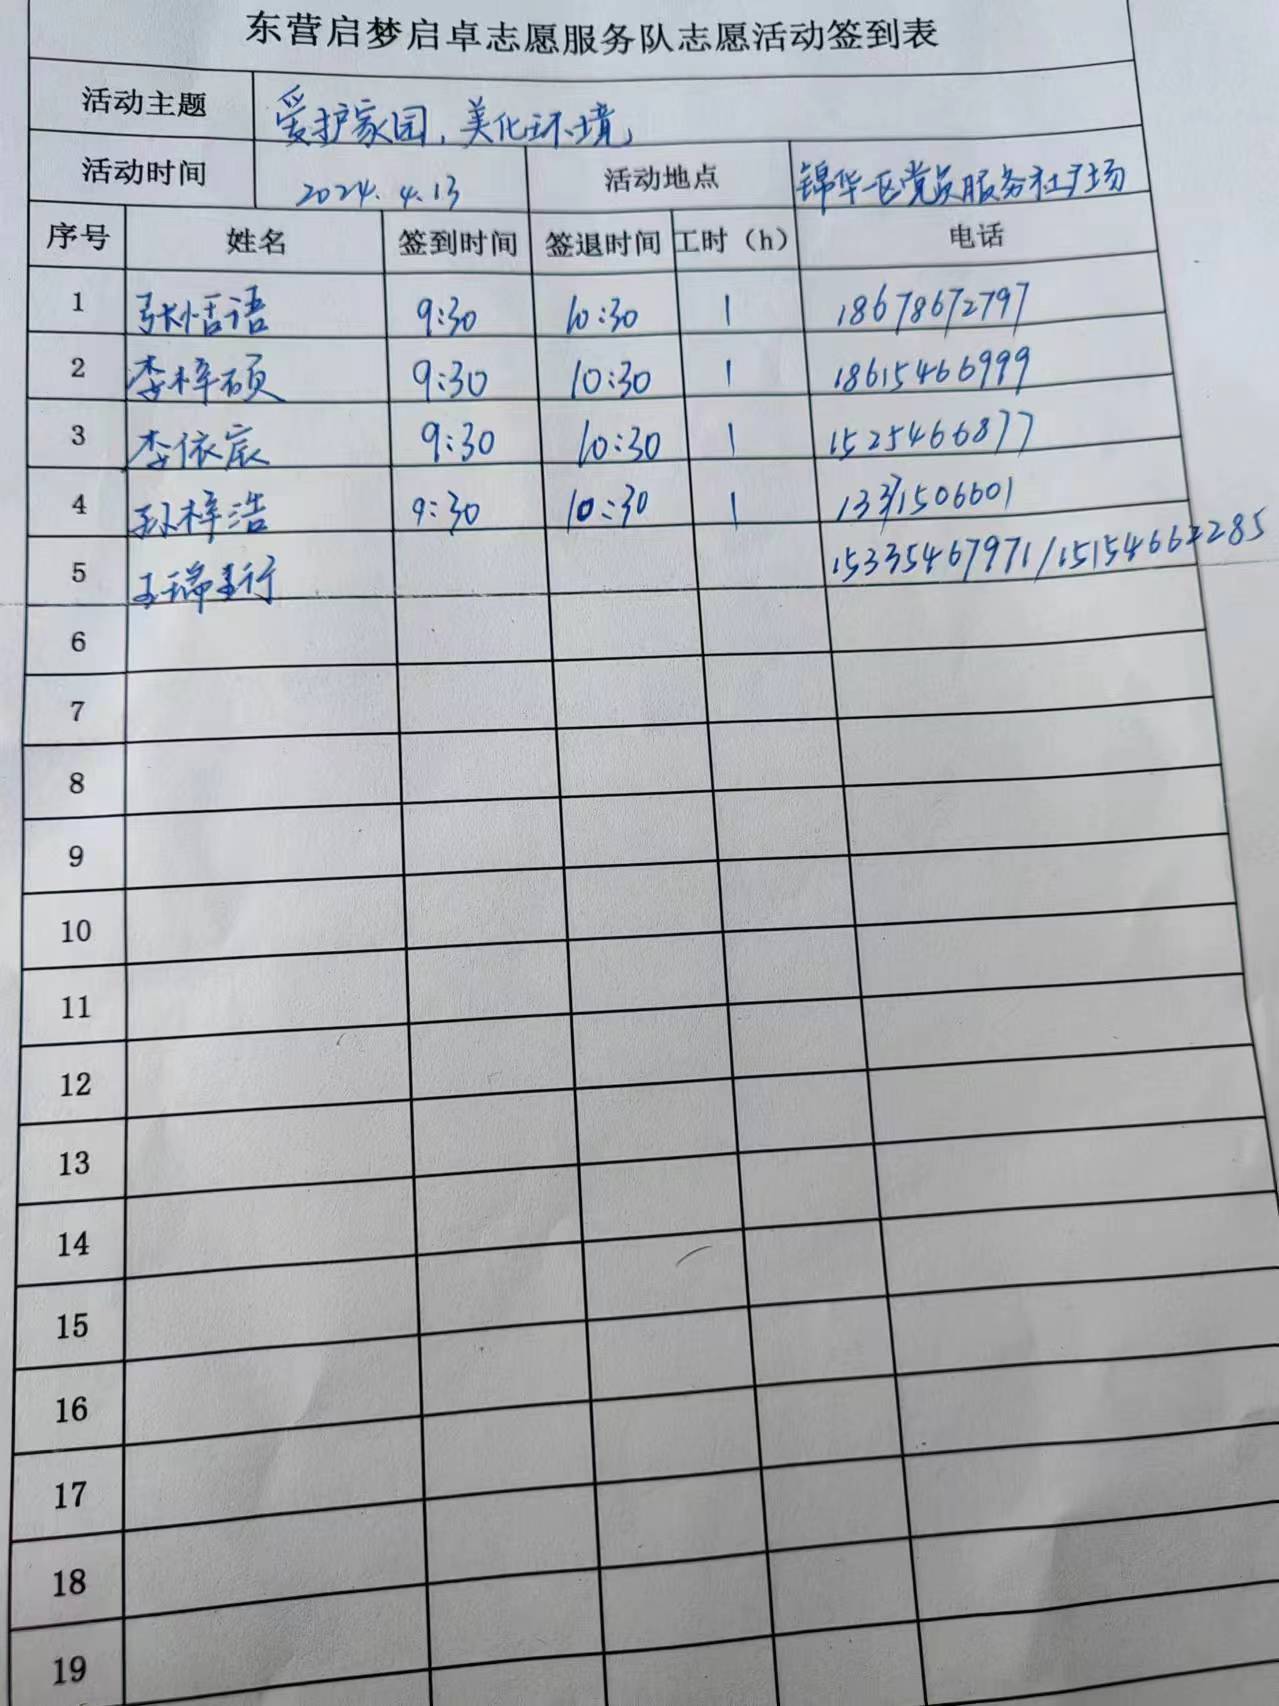 东营启梦启卓志愿服务队志愿活动签到表
活动主题 爱护家园，美化环境
活动时间 2024.4.13 活动地点 锦华一区党员服务社广场
序号 姓名 签到时间 签退时间 工时（h） 电话
1 张恬语 9:30 10:30 1 18678672797
2 李梓硕 9:30 10:30 1 18615466999
3 李依宸 9:30 10:30 1 1525466877
4 孙梓浩 9:30 10:30 1 13371506601
5 15335467971/15154662285
6
7
8
9
10
11
12
13
14
15
16
17
18
19